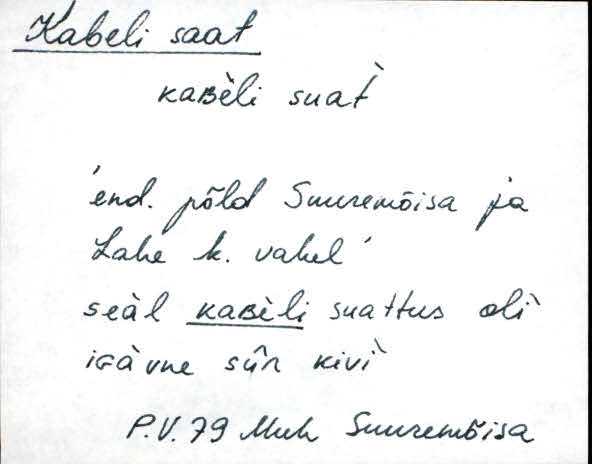 Kabeli saat
kaʙèli suat̀
'end. põld Suuremõisa ja
Lahe k. vahel'
seàl kaʙèli suattus olì
iɢàvne sûr kivì
P.V. 79 Muh Suuremõisa